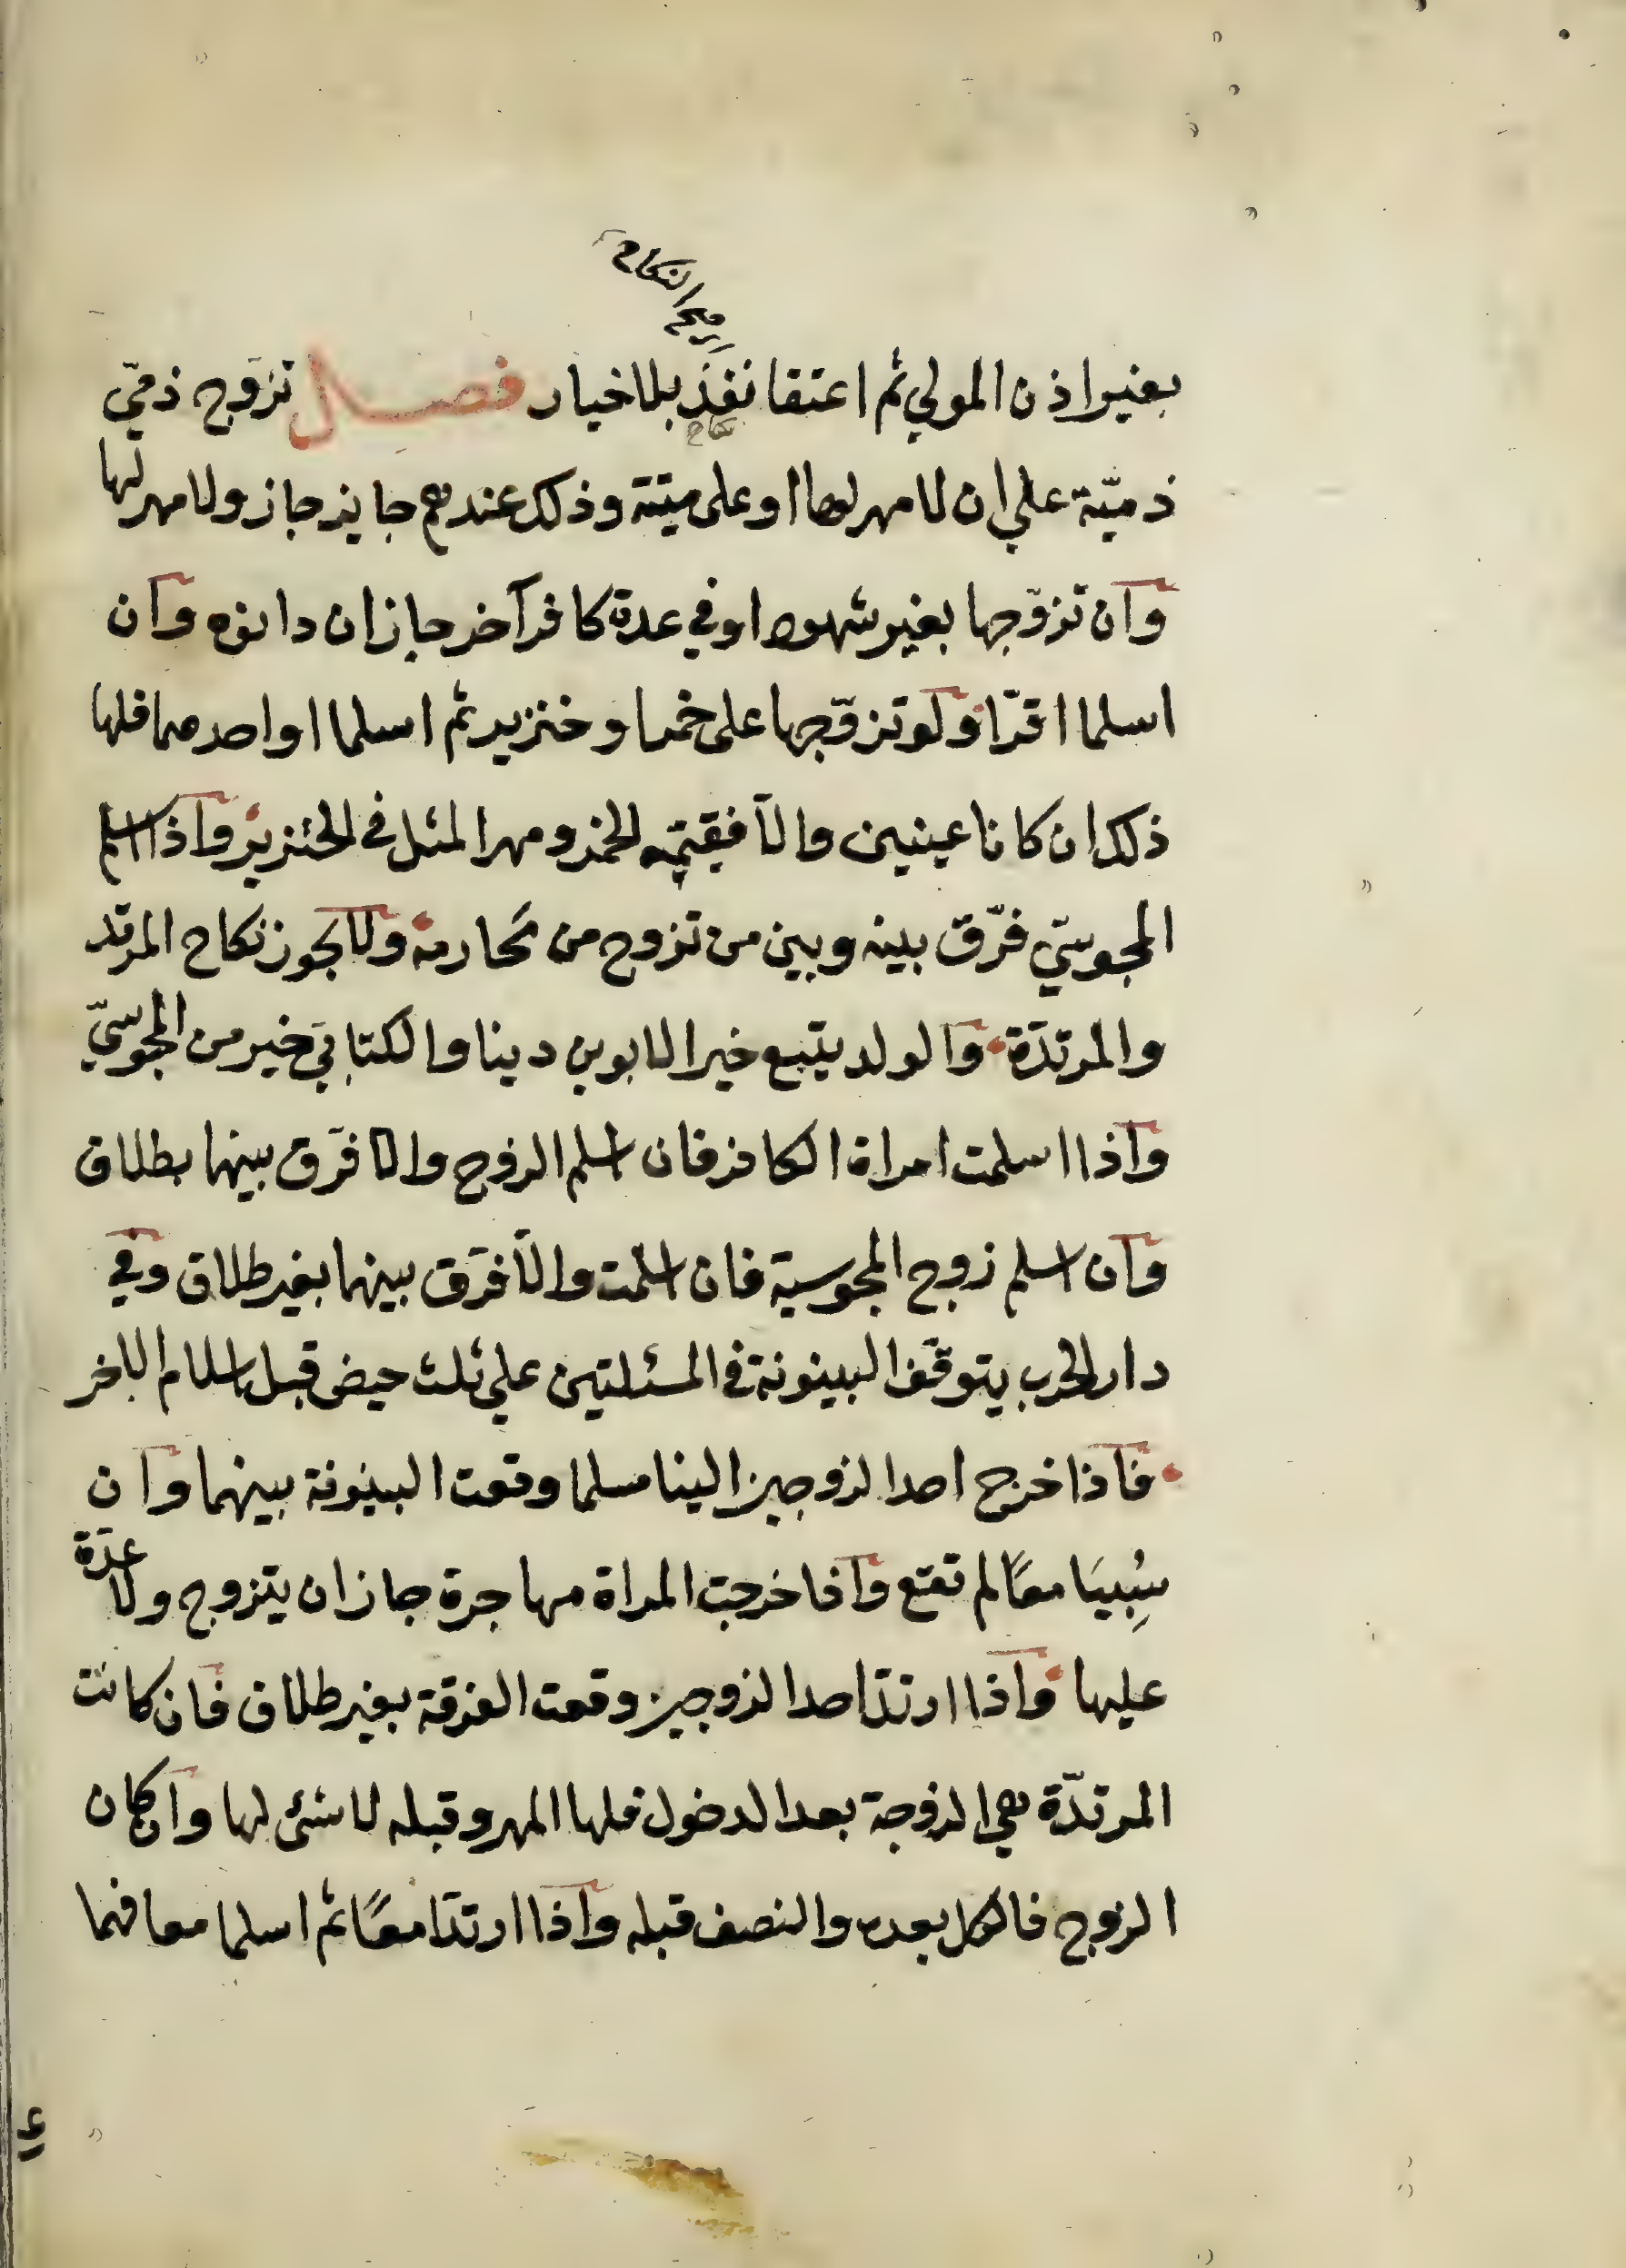 صح النكاح
بغير اذن المولي ثم اعتقا نفذ بلا خيار فصل تزوج ذميّ
نكاح
ذميّة علي ان لا مهر لها او على ميتة وذلك عندهم جايز جاز ولا مهر لها
وان تزوّجها بغير شهود او في عدة كافر آخر جاز ان دانوه وان
اسلما اقرّا ولو تزوّجها على خمر او خنزير ثم اسلما او احدهما فلها
ذلك ان كانا عينين والا فقيمة الخمر ومهر المثل في الخنزير واذا اسلم
المجوسيّ فرّق بينه وبين من تزوج من محارمه ولا يجوز نكاح المرتد
والمرتدّة والولد يتبع خير الابوين دينا والكتابيّ خير من المجوسيّ
واذا اسلمت امراة الكافر فان اسلم الزوج والا فرّق بينهما بطلاق
وان اسلم زوج المجوسية فان اسلمت والا فرّق بينهما بغير طلاق وفي
دار الحرب يتوقّف البينونة في المسئلتين علي ثلث حيض قبل اسلام الاخر
فاذا خرج احد الزوجين الينا مسلما وقعت البينونة بينهما وان
سُبِيَا معًا لم تقع واذا خرجت المراة مهاجرة جاز ان يتزوج ولا عدّة
عليها واذا ارتدّ احد الزوجين وقعت الفرقة بغير طلاق فان كانت
المرتدّة هي الزوجة بعد الدخول فلها المهر وقبله لا شئ لها وان كان
الزوج فالكل بعده والنصف قبله واذا ارتدّا معًا ثم اسلما معا فهما